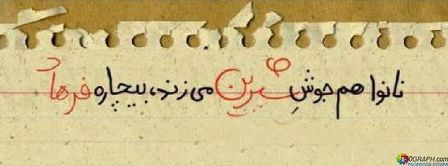 نانوا هم جوشِ شیرین می‌زند، بیچاره فرهاد
3OGRAPH.com